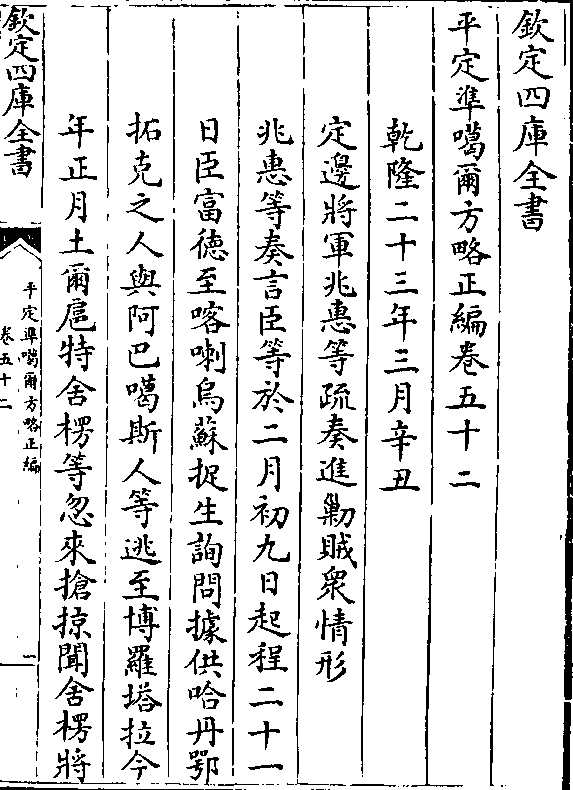 欽定四庫全書
平定準噶爾方略正編卷五十二
乾隆二十三年三月辛丑
定邊將軍兆惠等疏奏進勦賊衆情形
兆惠等奏言臣等於二月初九日起程二十一
日臣富德至喀喇烏蘇捉生詢問據供哈丹鄂
拓克之人與阿巴噶斯人等逃至博羅塔拉今
年正月土爾扈特舍楞等忽來搶掠聞舍楞將
欽定四庫全書
平定準噶爾方略正編
卷五十二
一